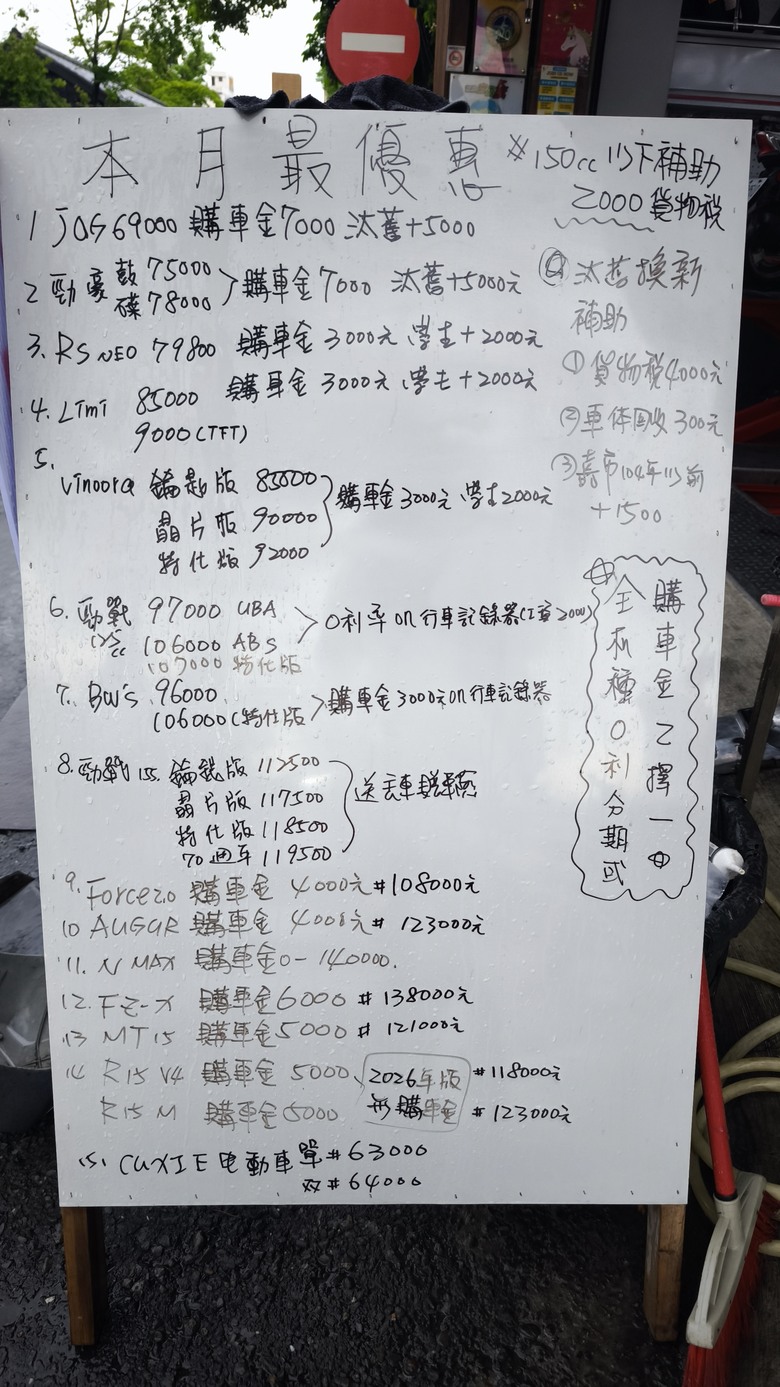 本月最優惠
※150cc以下補助
2000貨物稅
1 JOG 69000 購車金7000 汰舊+5000
2 勁豪 鼓 75000 購車金7000 汰舊+5000元
碟 78000
3. RS NEO 79800 購車金3000元 學生+2000元
4. Limi 85000 購車金3000元 學生+2000元
9000(TFT)
5.
Vinoora 鑰匙版 85000 購車金3000元 學生2000元
晶片版 90000
特仕版 92000
6. 勁戰 97000 UBA 0利率 or 行車記錄器
125cc 106000 ABS
107000 特仕版
7. BW's 96000 購車金3000元 or 行車記錄器
106000(特仕版
8. 勁戰155. 鑰匙版 112500
晶片版 117500
特仕版 118500
70週年 119500
9. Force2.0 購車金 4000元 #108000元
10 AUGUR 購車金 4000元 # 123000元
11. N MAX 購車金0-140000.
12. FZ-X 購車金6000 # 138000元
13 MT15 購車金5000 # 121000元
14 R15 V4 購車金 5000、 #118000元
R15 M 購車金5000 # 123000元
2026年版
無購車金
15、CUXIE电動車 單#63000
双#64000
汰舊換新
補助
①貨物稅4000元
②車体回收300元
③嘉市104年以前
+1500
購車金乙擇一
全机種0利分期或